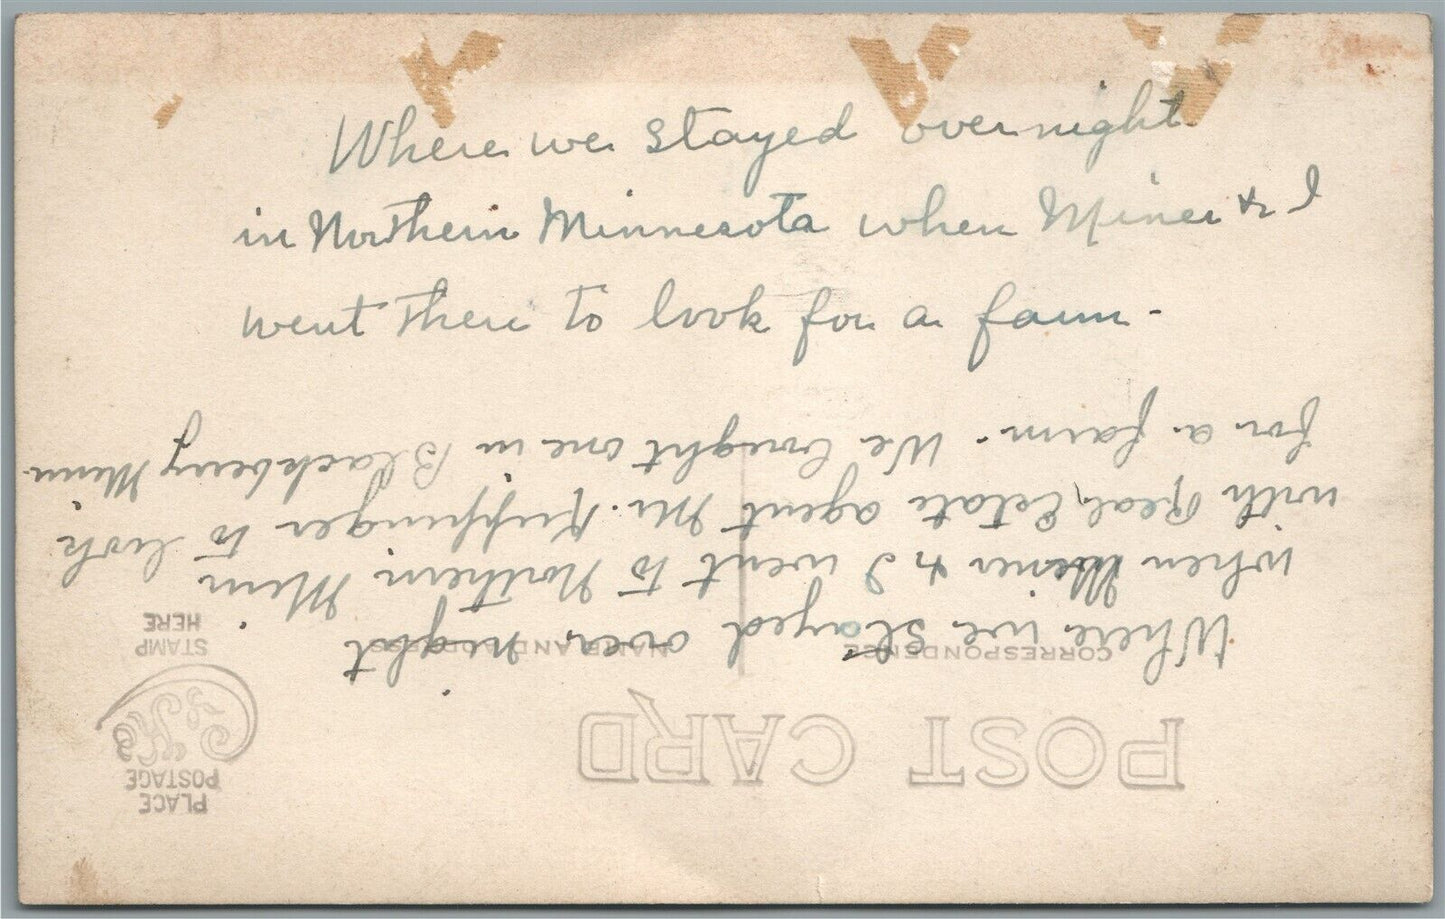 Where we stayed over night
in Northern Minnesota when Miner & I
went there to look for a farm.
POST CARD
PLACE
POSTAGE
STAMP
HERE
CORRESPONDENCE
NAME AND ADDRESS
Where we stayed over night
when Miner & I went to Northern Minn
with Real Estate agent Mr. to look
for a farm. We bought one in Blackberry Minn.